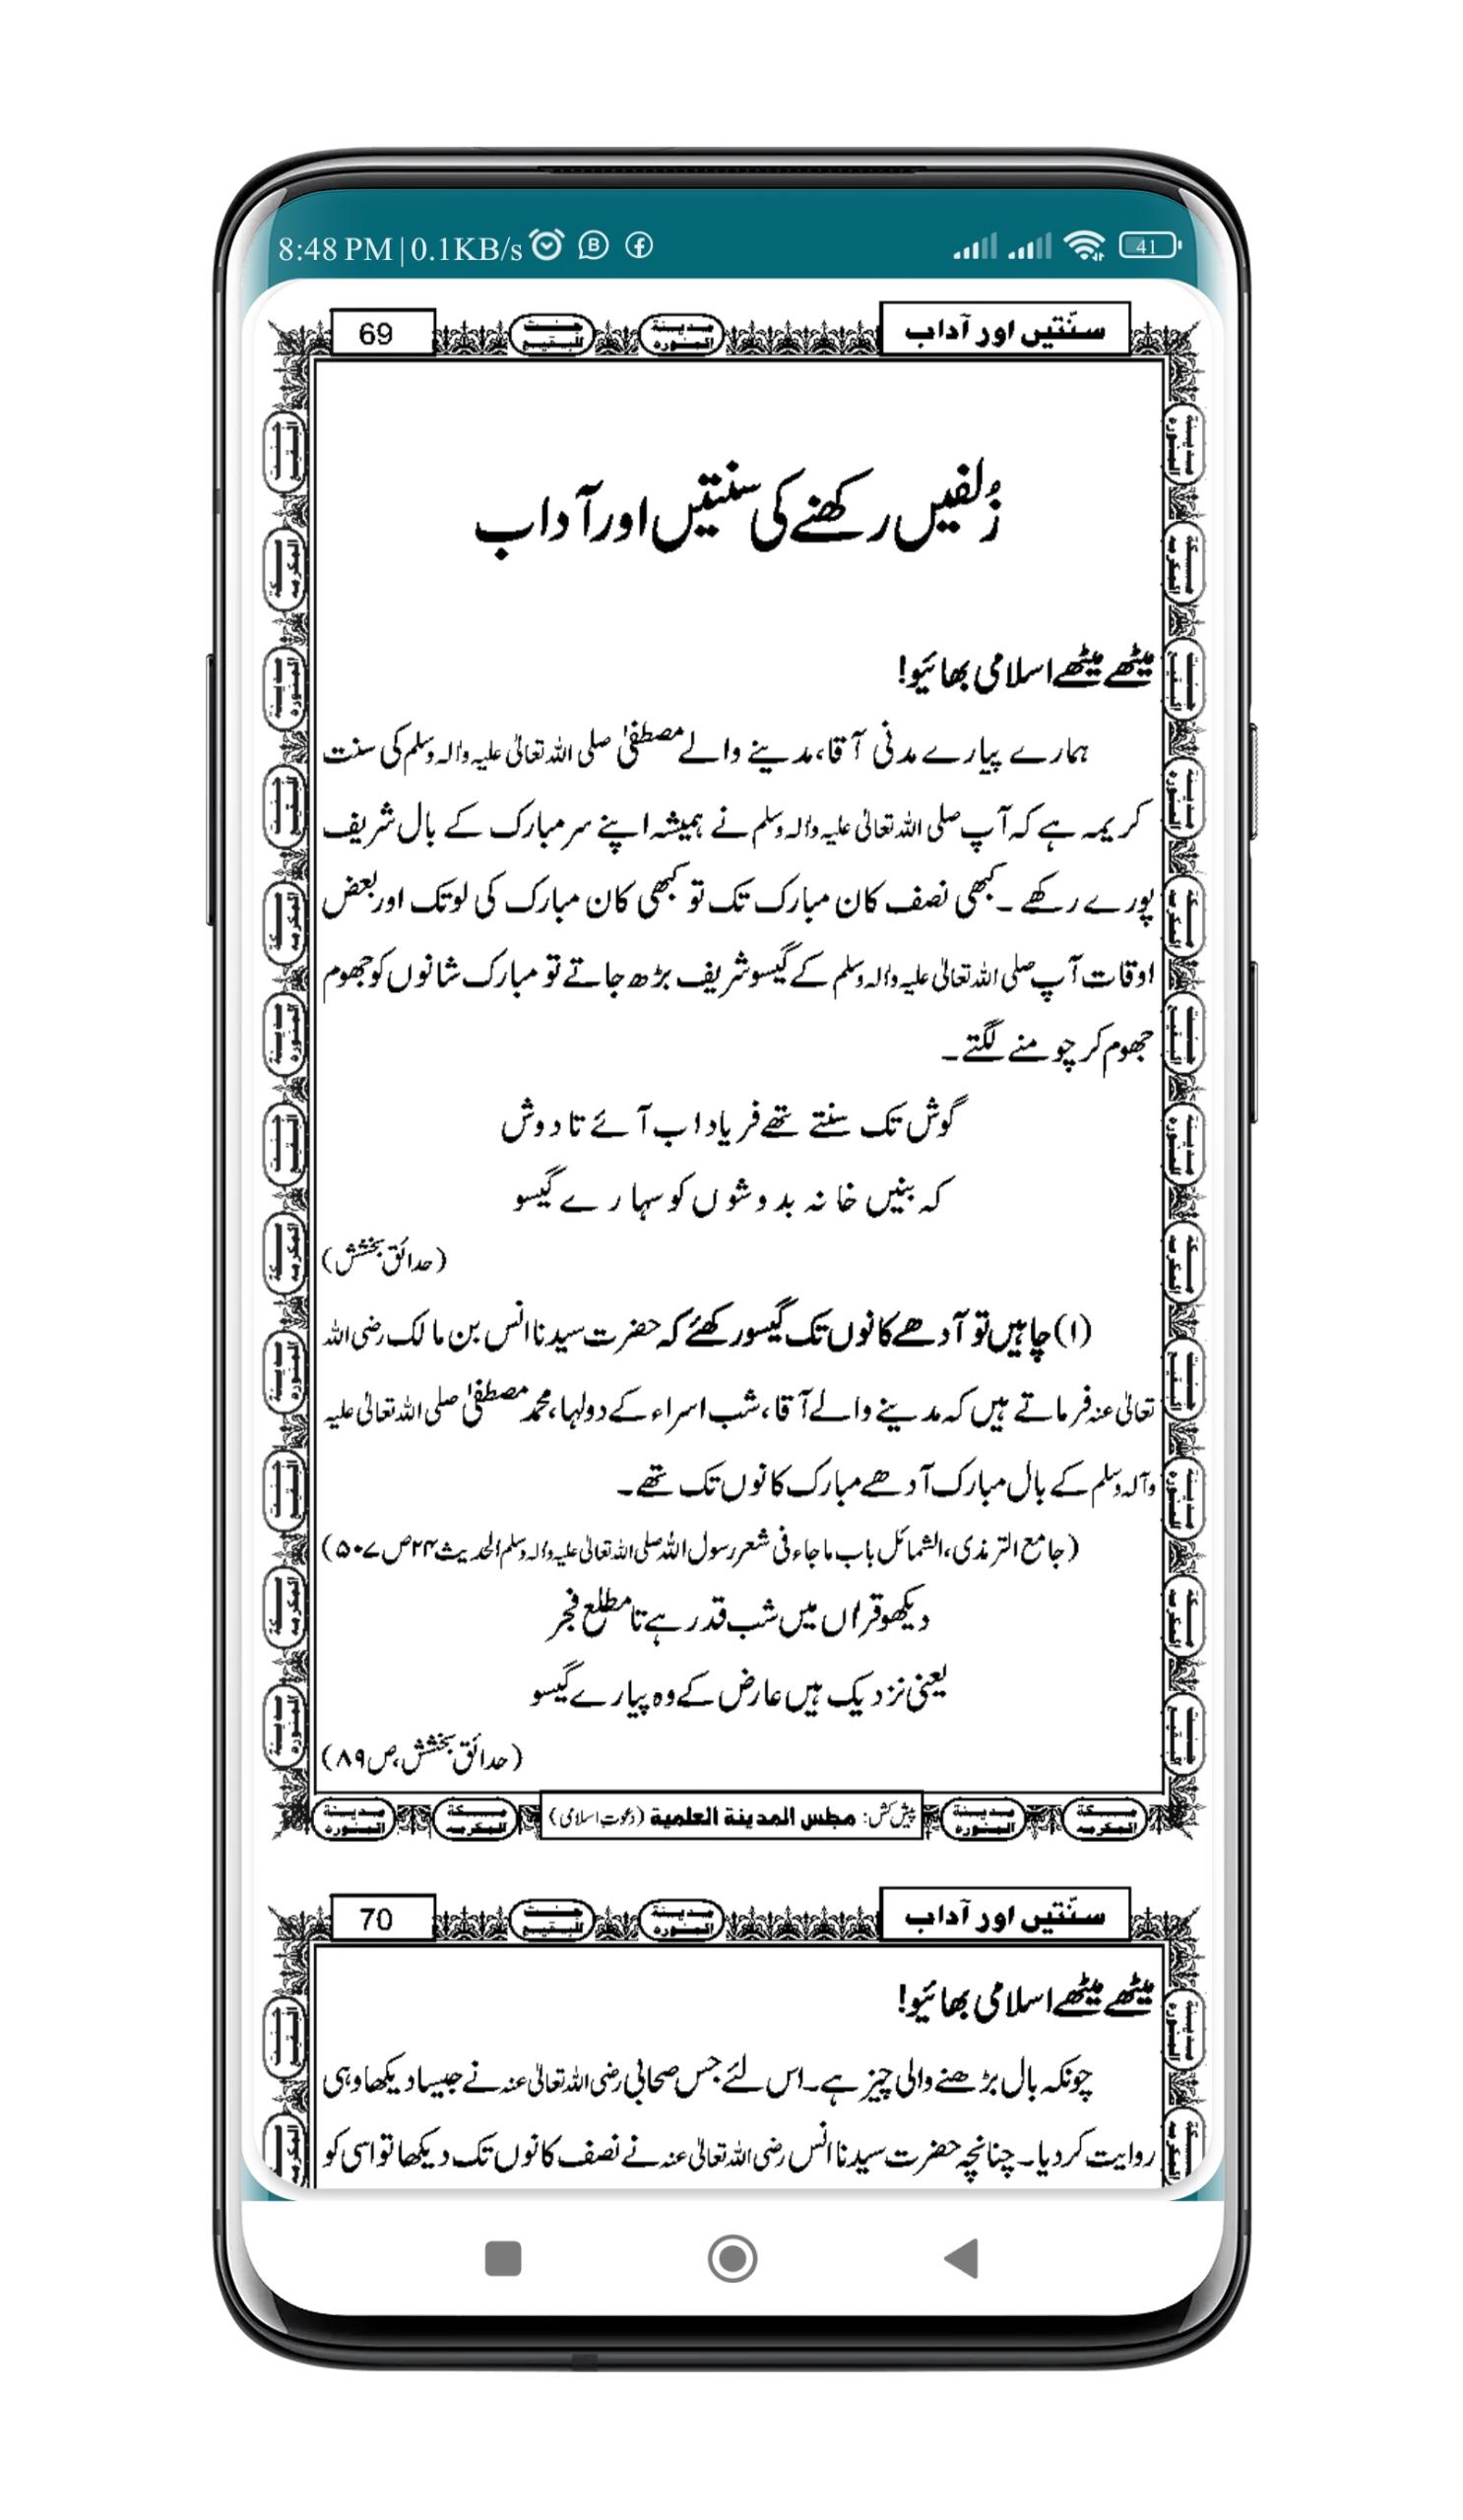 8:48 PM | 0.1KB/s
41
سنّتیں اور آداب
69
زُلفیں رکھنے کی سنتیں اور آداب
میٹھے میٹھے اسلامی بھائیو!
ہمارے پیارے مدنی آقا، مدینے والے مصطفیٰ صلی اللہ تعالیٰ علیہ واٰلہ وسلم کی سنت
کریمہ ہے کہ آپ صلی اللہ تعالیٰ علیہ واٰلہ وسلم نے ہمیشہ اپنے سر مبارک کے بال شریف
پورے رکھے ۔ کبھی نصف کان مبارک تک تو کبھی کان مبارک کی لو تک اور بعض
اوقات آپ صلی اللہ تعالیٰ علیہ واٰلہ وسلم کے گیسو شریف بڑھ جاتے تو مبارک شانوں کو جھوم
جھوم کر چومنے لگتے ۔
گوش تک سنتے تھے فریاد اب آئے تا دوش
کہ بنیں خانہ بدوشوں کو سہارے گیسو
(حدائق بخشش)
(۱) چاہیں تو آدھے کانوں تک گیسو رکھئے کہ حضرت سیدنا انس بن مالک رضی اللہ
تعالیٰ عنہ فرماتے ہیں کہ مدینے والے آقا، شب اسراء کے دولہا، محمد مصطفیٰ صلی اللہ تعالیٰ علیہ
وآلہ وسلم کے بال مبارک آدھے مبارک کانوں تک تھے ۔
(جامع الترمذی، الشمائل باب ماجاء فی شعر رسول اللہ صلی اللہ تعالیٰ علیہ واٰلہ وسلم الحدیث ۲۴ ص ۵۰۷)
دیکھو قراٰں میں شب قدر ہے تا مطلع فجر
یعنی نزدیک ہیں عارض کے وہ پیارے گیسو
(حدائق بخشش، ص ۸۹)
پیش کش: مجلس المدینۃ العلمیۃ (دعوت اسلامی)
سنّتیں اور آداب
70
میٹھے میٹھے اسلامی بھائیو!
چونکہ بال بڑھنے والی چیز ہے ۔ اس لئے جس صحابی رضی اللہ تعالیٰ عنہ نے جیسا دیکھا وہی
روایت کر دیا ۔ چنانچہ حضرت سیدنا انس رضی اللہ تعالیٰ عنہ نے نصف کانوں تک دیکھا تو اسی کو